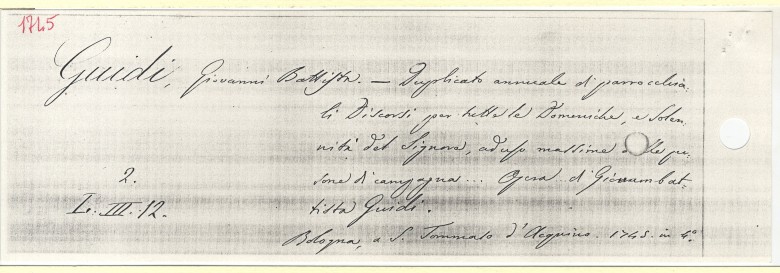 1745
Guidi, Giovanni Battista. — Duplicato annuale di parrocchia:
li Discorsi per tutte le Domeniche, e Solen:
nità del Signore, ad uso massime delle per:
sone di campagna... Opera.. di Giovambat:
2.
tista Guidi.
L. III. 12.
Bologna, a S. Tommaso d'Acquino. 1745. in 4.º